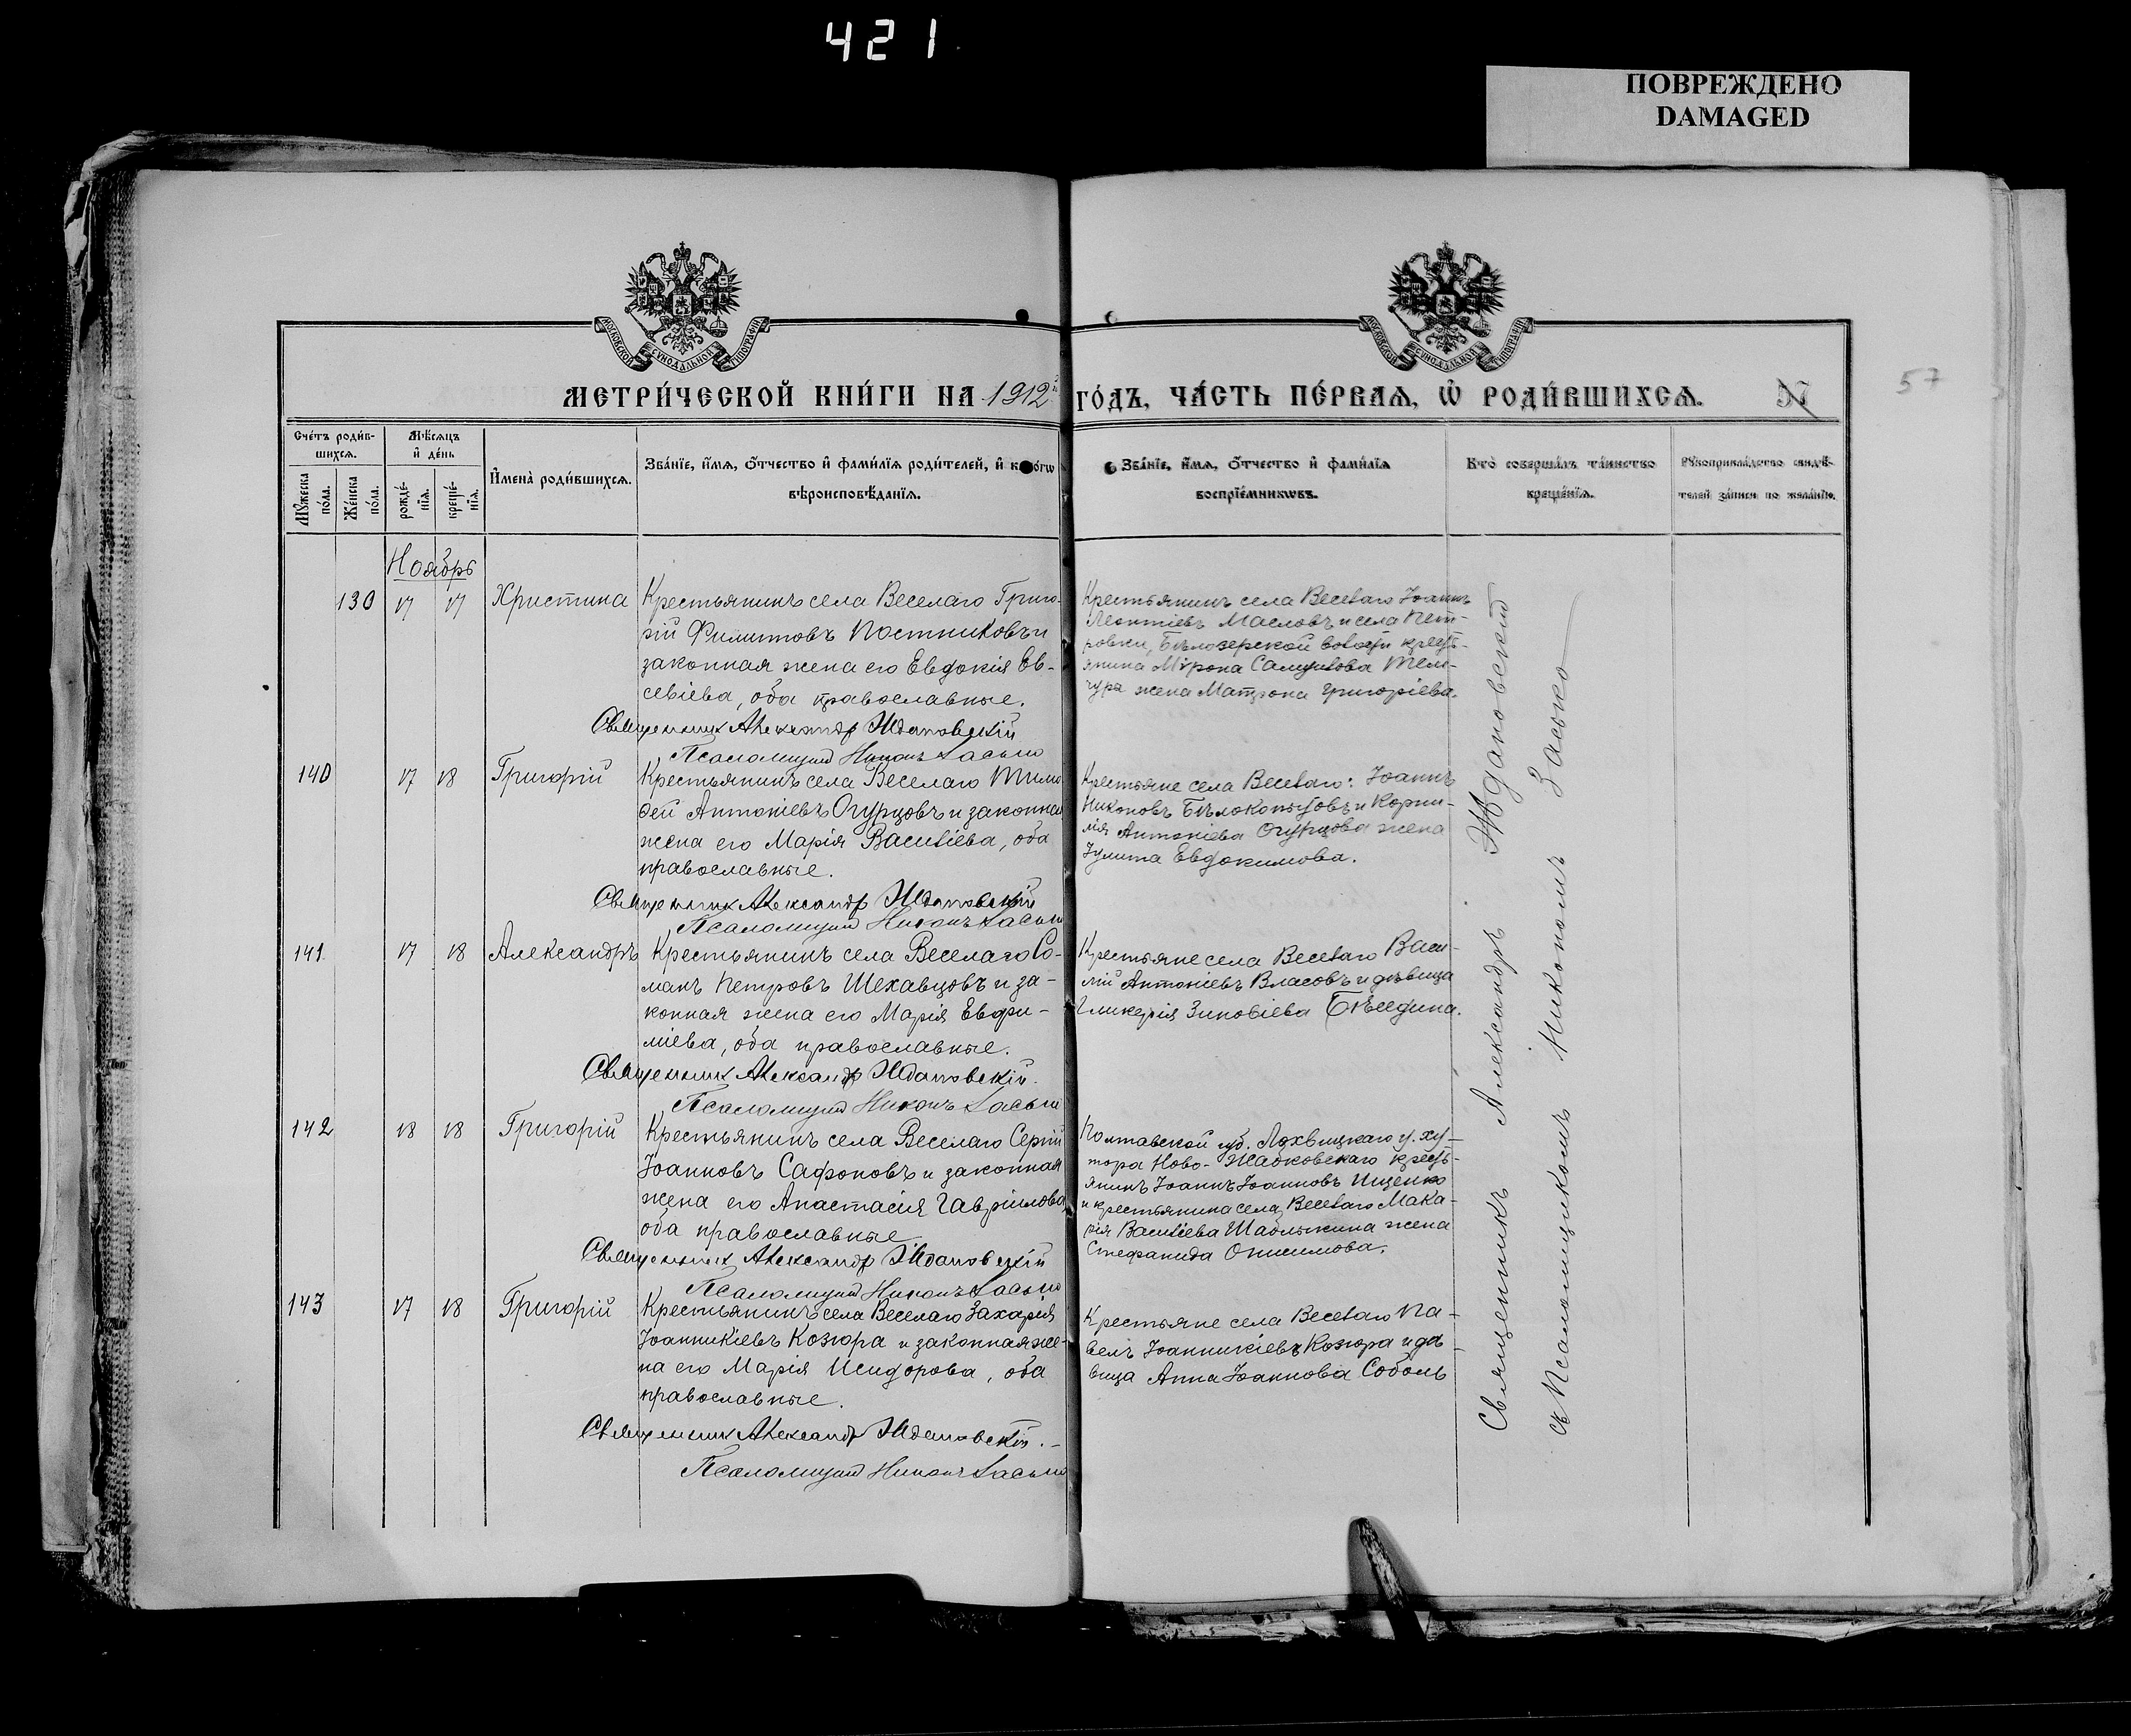 421
ПОВРЕЖДЕНО
DAMAGED
МОСКОВСКОЙ СУНОДАЛЬНОЙ ТИПОГРАФІИ
МОСКОВСКОЙ СУНОДАЛЬНОЙ ТИПОГРАФІИ
МЕТРИ́ЧЕСКОЙ КНИ́ГИ НА 1912 ГО́ДЪ, ЧА́СТЬ ПЕ́РВАѦ, Ѡ҆ РОДИ́ВШИХСѦ.
57
57
Сче́тъ роди́в-
шихсѧ.
Мѣ́сѧцъ
и҆ де́нь
Мꙋ́жеска
по́ла.
Же́нска
по́ла.
рожде́-
нїѧ.
креще́-
нїѧ.
И҆мена̀ роди́вшихсѧ.
Зва́нїе, и҆́мѧ, ѻ҆́тчество и҆ фами́лїѧ роди́телей, и҆
вѣроисповѣ́данїѧ.
Зва́нїе, и҆́мѧ, ѻ҆́тчество и҆ фами́лїѧ
воспрїе́мникѡвъ.
Кто̀ соверша́лъ та́инство
креще́нїѧ.
Рꙋкоприкла́дство свидѣ́-
телей за́писи по жела́нїю.
Ноябрь
130 17 17 Христина
Крестьянинъ села Веселаго Григо-
рій Филиповъ Постниковъ и
законная жена его Евдокія Ев-
севіева, оба православные.
Священник Александр Ждановскій
Псаломщик Никонъ Засько
Крестьянинъ села Веселаго Іоаннъ
Леонтіевъ Масловъ и села Пет-
ровки, Бѣлозерской волости кресть-
янина Мѵрона
жена Матрона Григоріева.
140 17 18 Григорій
Крестьянинъ села Веселаго Тимо
фей Антоніевъ Огурцовъ и законная
жена его Марія Василіева, оба
православные.
Священник Александр Ждановскій
Псаломщик Никонъ Засько
Крестьяне села Веселаго: Іоаннъ
Никоновъ Бѣлокопытовъ и Корни-
лія Антоніева Огурцова жена
Іулита Евдокимова.
141 17 18 Александръ
Крестьянинъ села Веселаго Ро-
манъ Петровъ Шехавцовъ и за-
конная жена его Марія Евфи-
міева, оба православные.
Священник Александр Ждановскій.
Псаломщик Никонъ Засько
Крестьяне села Веселаго Васи-
лій Антоніевъ Власовъ и дѣвица
Гликерія Зиновіева Бѣседина.
142 18 18 Григорій
Крестьянинъ села Веселаго Сергій
Іоанновъ Сафоновъ и законная
жена его Анастасія Гавріилова,
оба православные
Священник Александр Ждановскій
Псаломщик Никонъ Засько
Полтавской губ. Лохвицкаго у. ху-
тора Ново-Жабковскаго кресть-
янинъ Іоаннъ Іоанновъ Ищенко
и крестьянина села Веселаго Мака-
рія Василіева Шаблыкина жена
Стефанида Онисимова.
143 17 18 Григорій
Крестьянинъ села Веселаго Захарія
Іоанникіевъ Козюра и законная же-
на его Марія Исидорова, оба
православные.
Священник Александр Ждановскій.
Псаломщик Никонъ Засько
Крестьяне села Веселаго Па-
велъ Іоанникіевъ Козюра и дѣ-
вица Анна Іоаннова Соболь
Священникъ Александръ Ждановскій
съ Псаломщикомъ Никономъ Засько